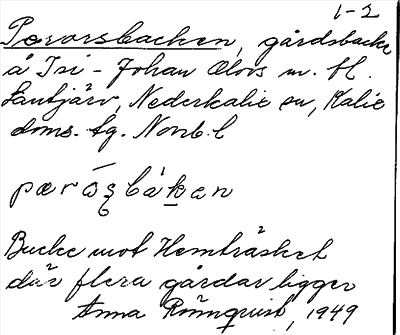 1-2
Perorsbacken, gårdsbacke
å Isi-Johan Olovs m. fl.
Lantjärv, Nederkalix sn, Kalix
doms. tg. Norrb. l
Backe mot Hemträsket
där flera gårdar ligger
Anna Rönnquist, 1949